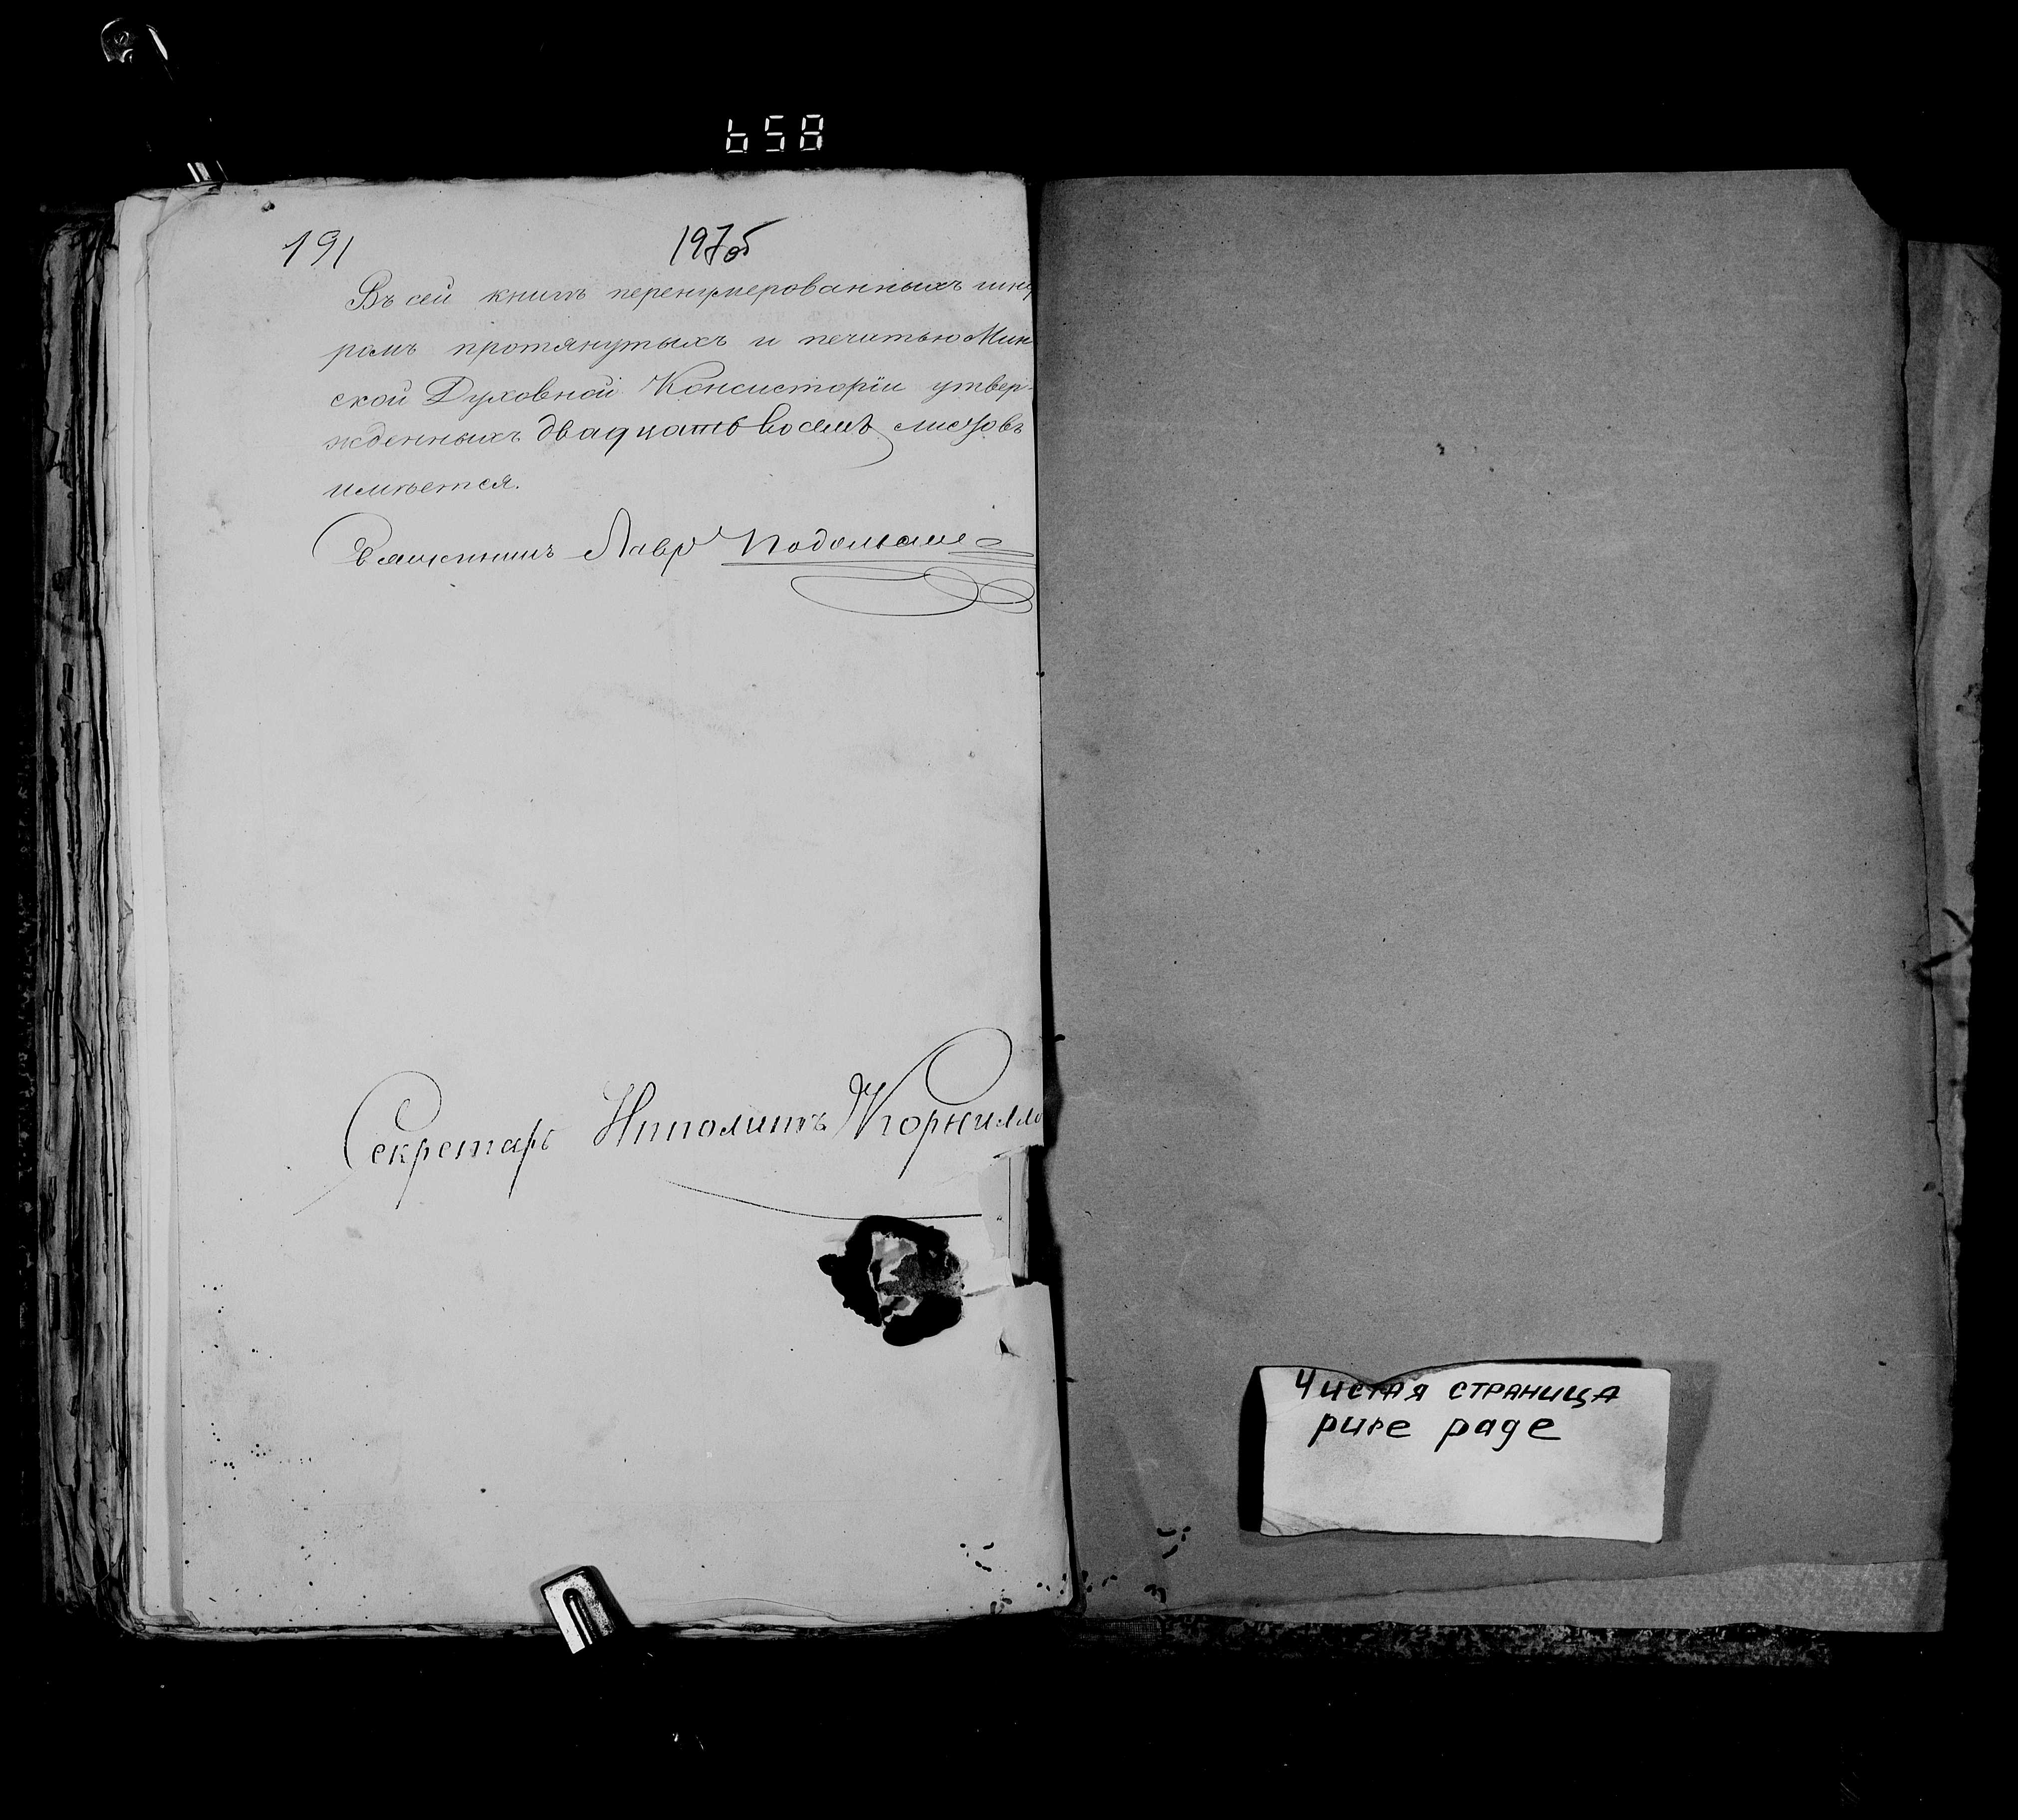 658
191
197об
Въ сей книгѣ перенумерованныхъ шну
ромъ протянутыхъ и печатью Мин
ской Духовной Консисторіи утвер-
жденныхъ двадцать восемь листовъ
имѣется.
Священникъ Лавр
Секретарь Ипполитъ Корнилло
Чистая страница
pure page